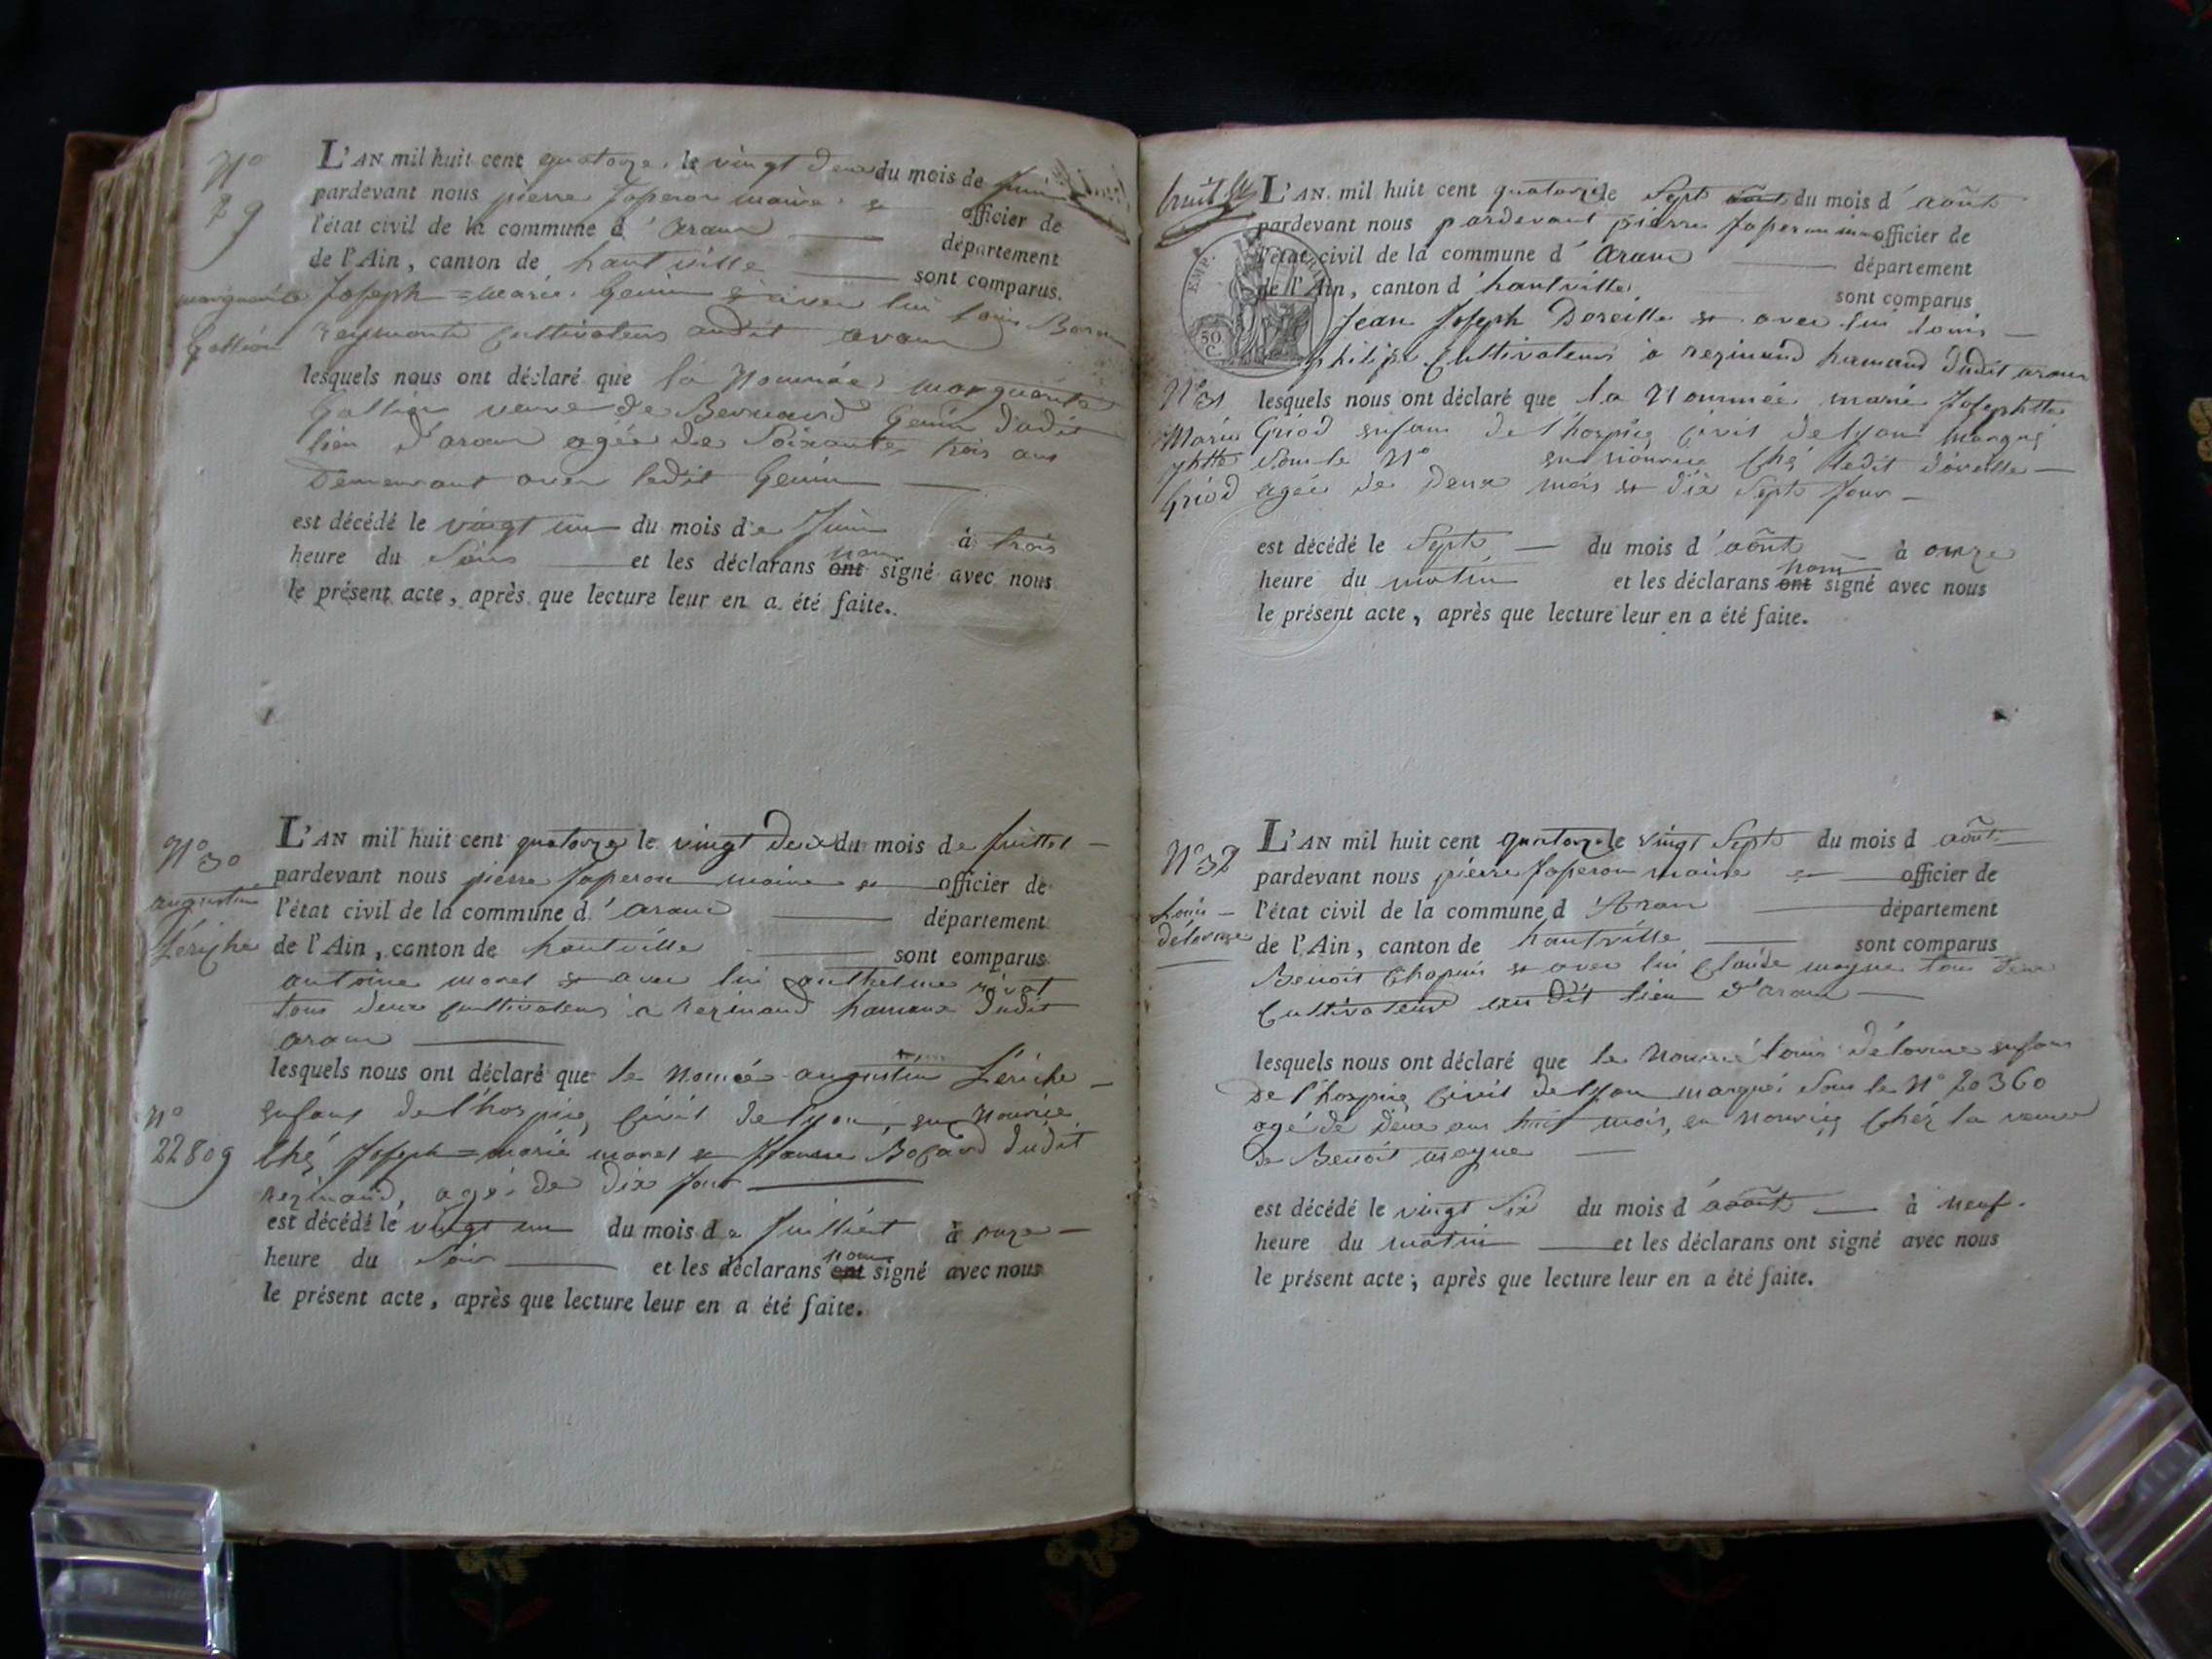 N°
29
L'AN mil huit cent quatorze, le vingt deux du mois de Juin
pardevant nous pierre Japeron maire & officier de
l'état civil de la commune d'aranc département
de l'Ain, canton de hautville sont comparus.
marguerite Joseph=marie Genin & avec lui Louis
Gallien cultivateurs audit aranc
lesquels nous ont déclaré que la Nommée marguerite
Gallien veuve de Bernard Genin dudit
lieu d'aranc agée de Soixante trois ans
Demeurant avec ledit Genin
est décédé le vingt un du mois de Juin à trois
heure du Soir et les déclarans ont non signé avec nous
le présent acte, après que lecture leur en a été faite.
N° 30
augustin
Lériche
L'AN mil huit cent quatorze le vingt deux du mois de juillet
pardevant nous pierre Japeron maire & officier de
l'état civil de la commune d'aranc département
de l'Ain, canton de hautville sont comparus
antoine moret & avec lui anthelme
tous deux cultivateurs a rezinand hameau dudit
aranc
lesquels nous ont déclaré que le Nomée augustin Lériche
enfant de l'hospice civil de lyon, en Nourice
N°
22809
Ché Joseph=marie moret & Jeanne dudit
rezinand, agé de dix jour
est décédé le vingt un du mois de juilliet à onze
heure du Soir et les déclarans ont non signé avec nous
le présent acte, après que lecture leur en a été faite.
huit
EMP.
50 C.
L'AN mil huit cent quatorze le Sept du mois d'août
pardevant nous pardevant pierre Japeron maire officier de
l'état civil de la commune d'aranc département
de l'Ain, canton d'hautville sont comparus
Jean Joseph Doreille & avec lui Louis
philipe cultivateurs a rezinand hameau dudit aranc
N° 31
lesquels nous ont déclaré que la Nommée marie Josephtte
Marie Griod enfant de l'hospice civil de lyon marqué
Sous le N° en nourice Ché ledit doreille
Griod agée de Deux mois & dix Sept Jour
est décédé le Sept du mois d'août à onze
heure du matin et les déclarans ont non signé avec nous
le présent acte, après que lecture leur en a été faite.
N° 32
Louis
délorme
L'AN mil huit cent quatorze le vingt Sept du mois d août
pardevant nous pierre Japeron maire & officier de
l'état civil de la commune d'Aranc département
de l'Ain, canton de hautville sont comparus
Benoit Chapuis & avec lui Claude moyne tous deux
Cultivateur au dit lieu d'aranc
lesquels nous ont déclaré que le Nommé Louis délorme enfant
De l'hospice Civil de lyon marqué Sous le N° 20360
agé de Deux ans huit mois, en nourice Ché la veuve
de Benoit moyne
est décédé le vingt Six du mois d'aoout à neuf
heure du matin et les déclarans ont signé avec nous
le présent acte; après que lecture leur en a été faite.